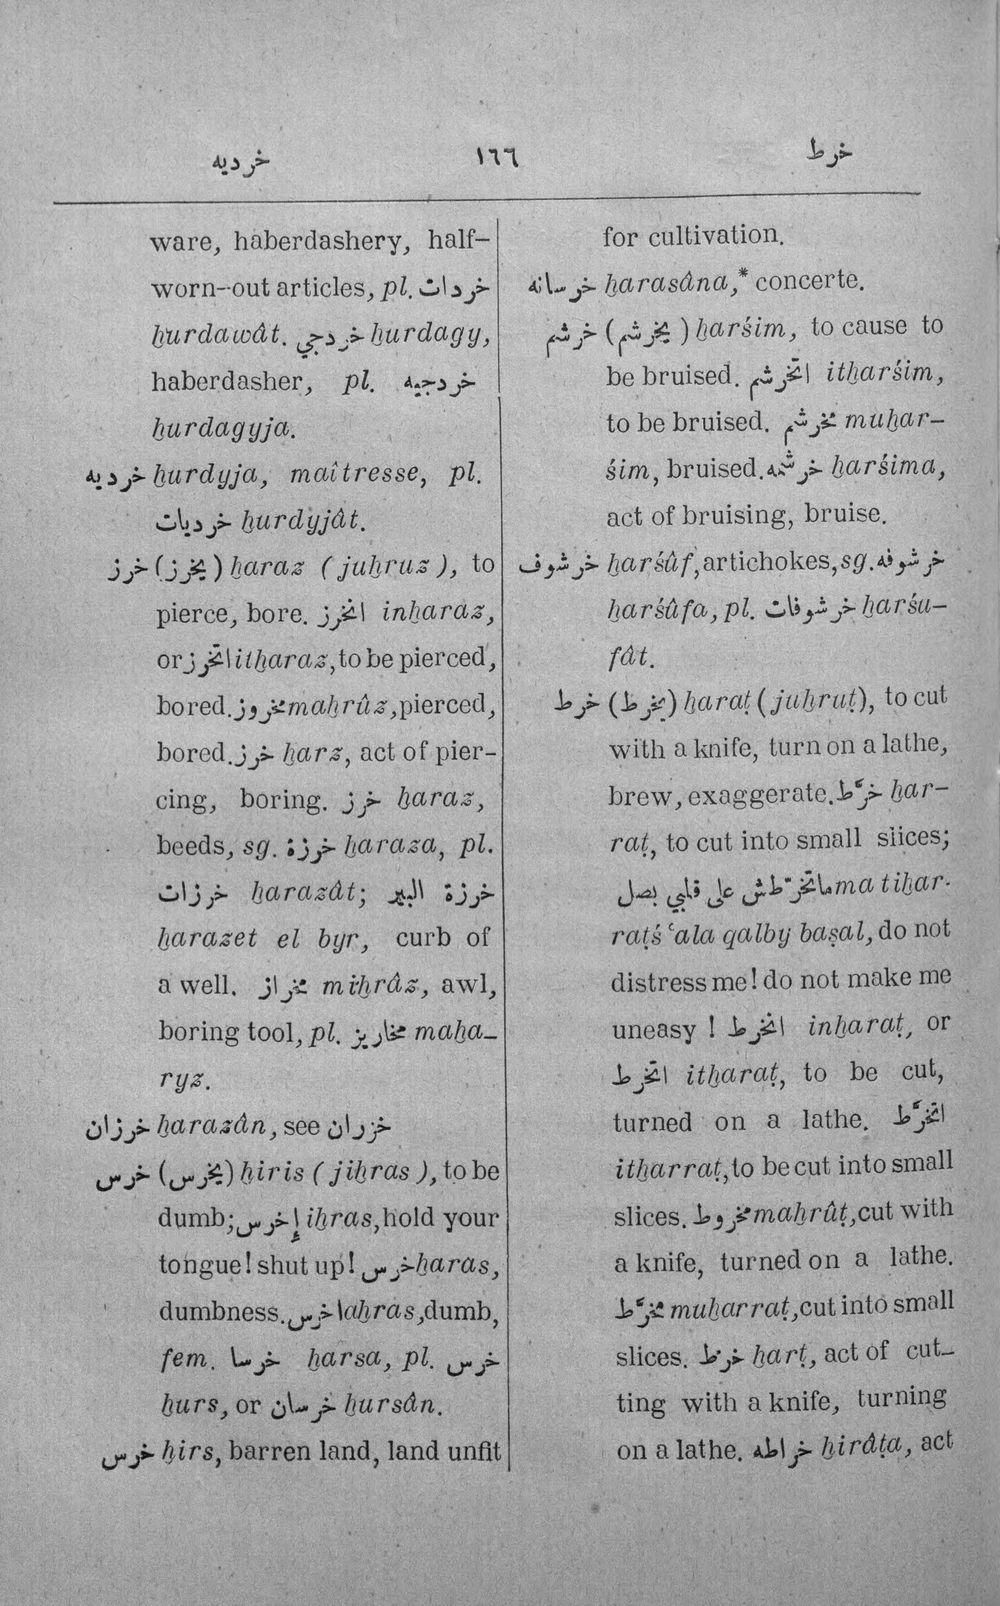 خرديه ١٦٦ خرط
ware, haberdashery, half-
worn-out articles, pl. خردات
ḫurdawât. خردجي ḫurdagy,
haberdasher, pl. خردجيه
ḫurdagyja.
خرديه ḫurdyja, maîtresse, pl.
خرديات ḫurdyjât.
خرز (يخرز) ḫaraz (juḫruz), to
pierce, bore. انخرز inḫaraz,
or اتخرز itḫaraz, to be pierced,
bored. مخروز maḫrûz, pierced,
bored. خرز ḫarz, act of pier-
cing, boring. خرز ḫaraz,
beeds, sg. خرزة ḫaraza, pl.
خرزات ḫarazât; خرزة البير
ḫarazet el byr, curb of
a well. مخراز miḫrâz, awl,
boring tool, pl. مخاريز maḫa-
ryz.
خرزان ḫarazân, see خزران
خرس (يخرس) ḫiris (jiḫras), to be
dumb; إخرس iḫras, hold your
tongue! shut up! خرس ḫaras,
dumbness. اخرس aḫras, dumb,
fem. خرسا ḫarsa, pl. خرس
ḫurs, or خرسان ḫursân.
خرس ḫirs, barren land, land unfit
for cultivation.
خرسانه ḫarasâna,* concerte.
خرشم (يخرشم) ḫarśim, to cause to
be bruised. اتخرشم itḫarśim,
to be bruised. مخرشم muḫar-
śim, bruised. خرشمه ḫarśima,
act of bruising, bruise.
خرشوف ḫarśûf, artichokes, sg. خرشوفه
ḫarśûfa, pl. خرشوفات ḫarśu-
fât.
خرط (يخرط) ḫaraṭ (juḫruṭ), to cut
with a knife, turn on a lathe,
brew, exaggerate. خرّط ḫar-
raṭ, to cut into small slices;
ماتخرّطش على قلبي بصل ma tiḫar-
raṭś ʿala qalby baṣal, do not
distress me! do not make me
uneasy! انخرط inḫaraṭ, or
اتخرط itḫaraṭ, to be cut,
turned on a lathe. اتخرّط
itḫarraṭ, to be cut into small
slices. مخروط maḫrûṭ, cut with
a knife, turned on a lathe.
مخرّط muḫarraṭ, cut into small
slices. خرط ḫarṭ, act of cut-
ting with a knife, turning
on a lathe. خراطه ḫirâṭa, act